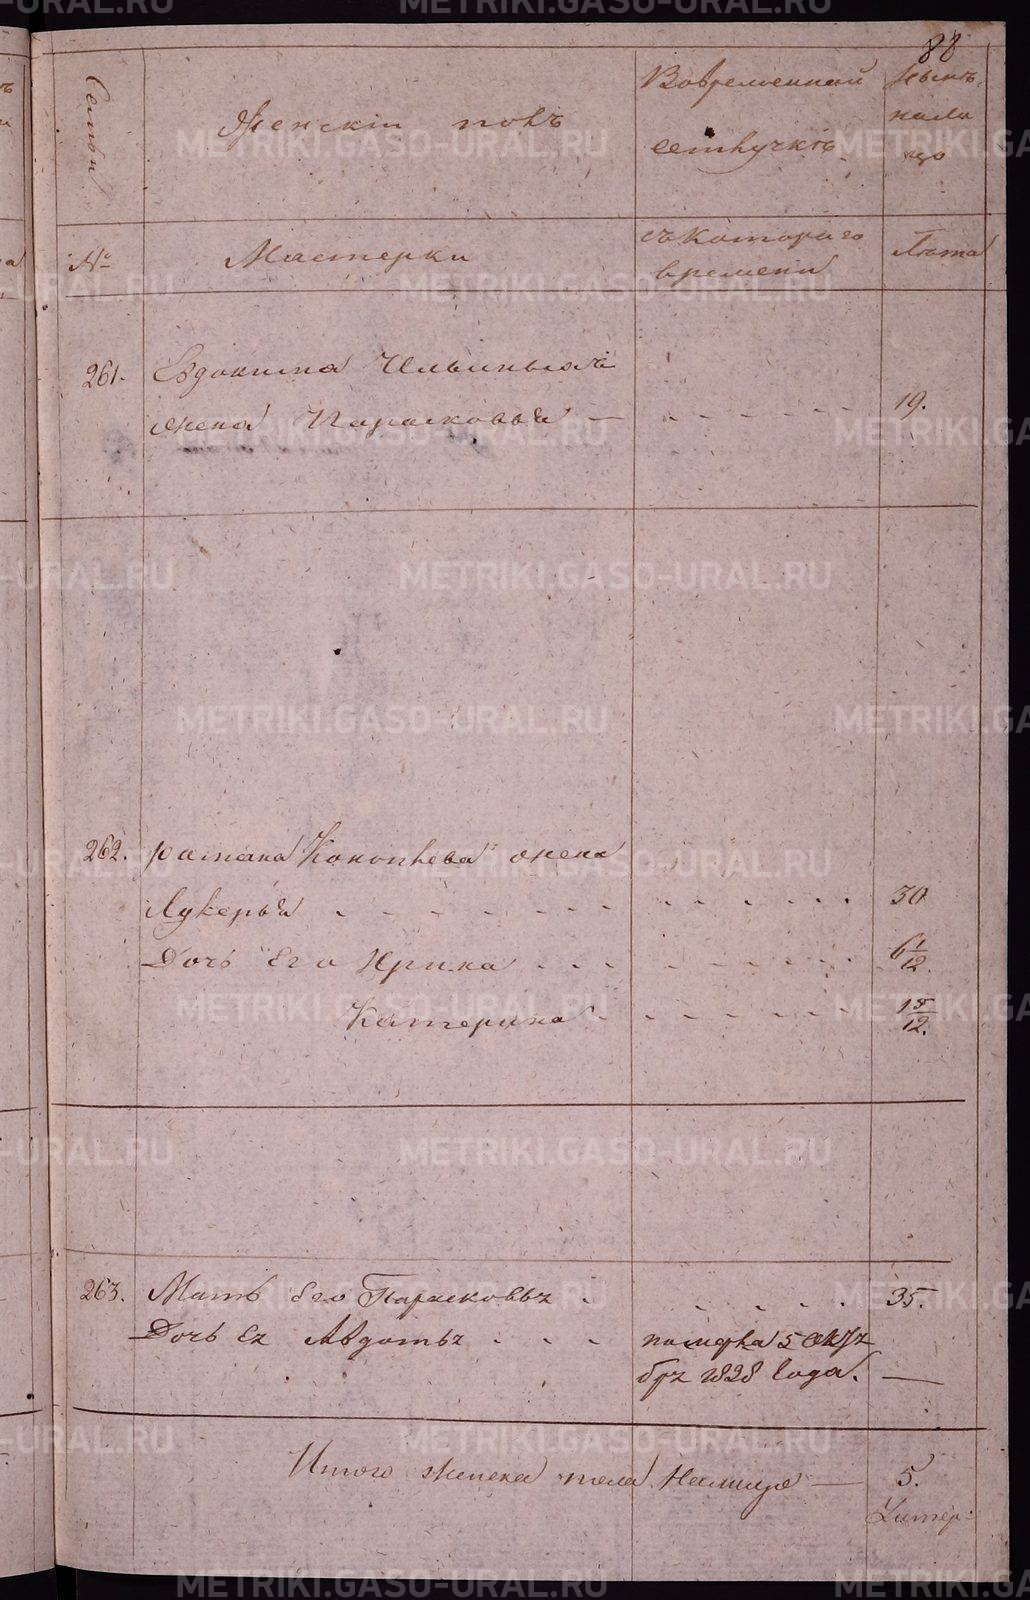 88
Семьи
Женский полъ
Во временной
отлучкѣ
Нынѣ
на ли
цо
№
Мастерки
съ котораго
времени
Лѣта
261. Евдокима Ильиныхъ
жена Парасковья — 19.
262. романа Коноплева жена
Лукерья 30
Дочь Его Ирина 6 1/12.
Катерина 1 8/12.
263. Мать Его Парасковья 35.
Дочь Ея Авдотья померла 5 Октя
бря 1828 Года. —
Итого женска пола на лицо — 5.
METRIKI.GASO-URAL.RU